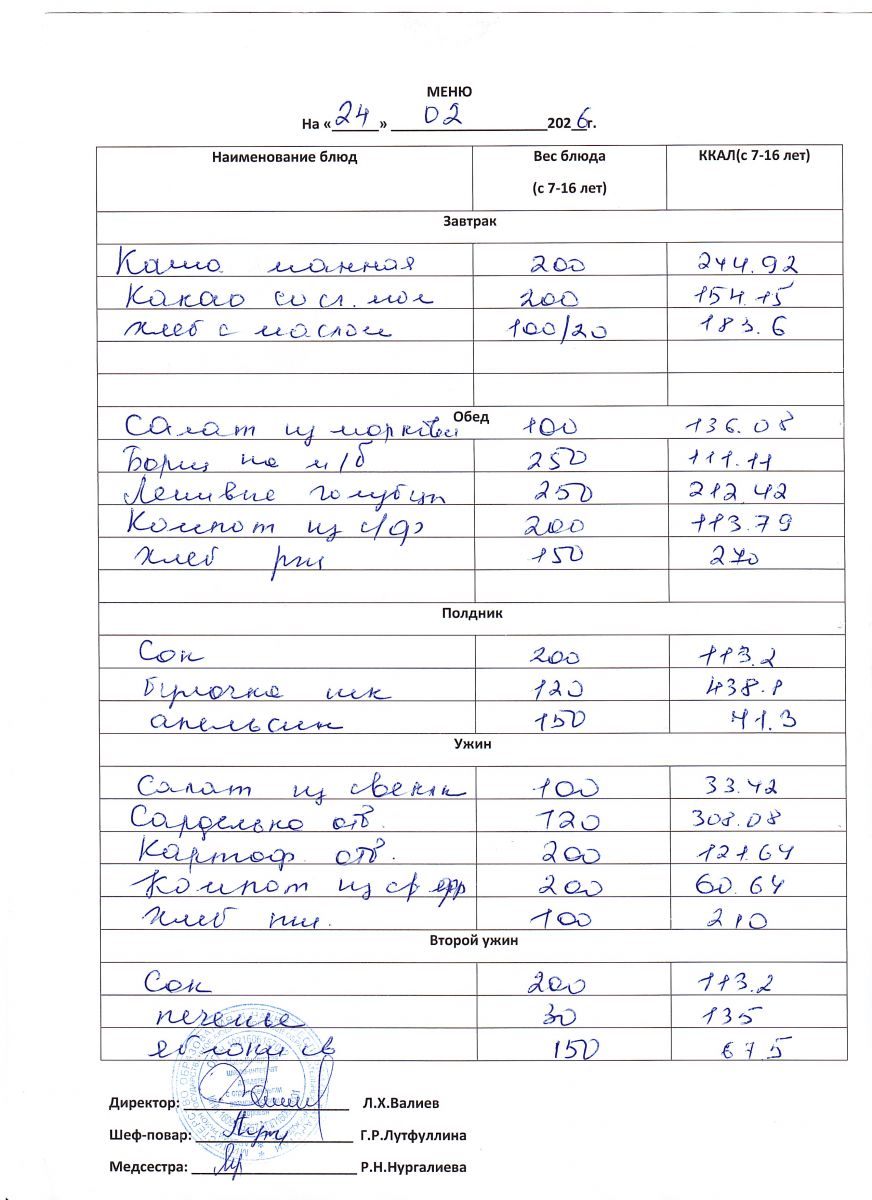 МЕНЮ
На «24» 02 2026г.
Наименование блюд Вес блюда (с 7-16 лет) ККАЛ(с 7-16 лет)
Завтрак
Каша манная 200 244.92
Какао со сг. мол 200 154.15
Хлеб с маслом 100/20 183.6
Обед
Салат из моркови 100 136.08
Борщ на м/б 250 111.11
Ленивые голубцы 250 212.42
Компот из с/ф 200 113.79
Хлеб рж 150 270
Полдник
Сок 200 113.2
Булочка шк 120 438.1
апельсин 150 41.3
Ужин
Салат из свеклы 100 33.42
Сарделька отв. 120 308.08
Картоф отв. 200 121.64
Компот из 200 60.64
Хлеб пш. 100 210
Второй ужин
Сок 200 113.2
печенье 30 135
яблоки св 150 67.5
Директор: Л.Х.Валиев
Шеф-повар: Г.Р.Лутфуллина
Медсестра: Р.Н.Нургалиева